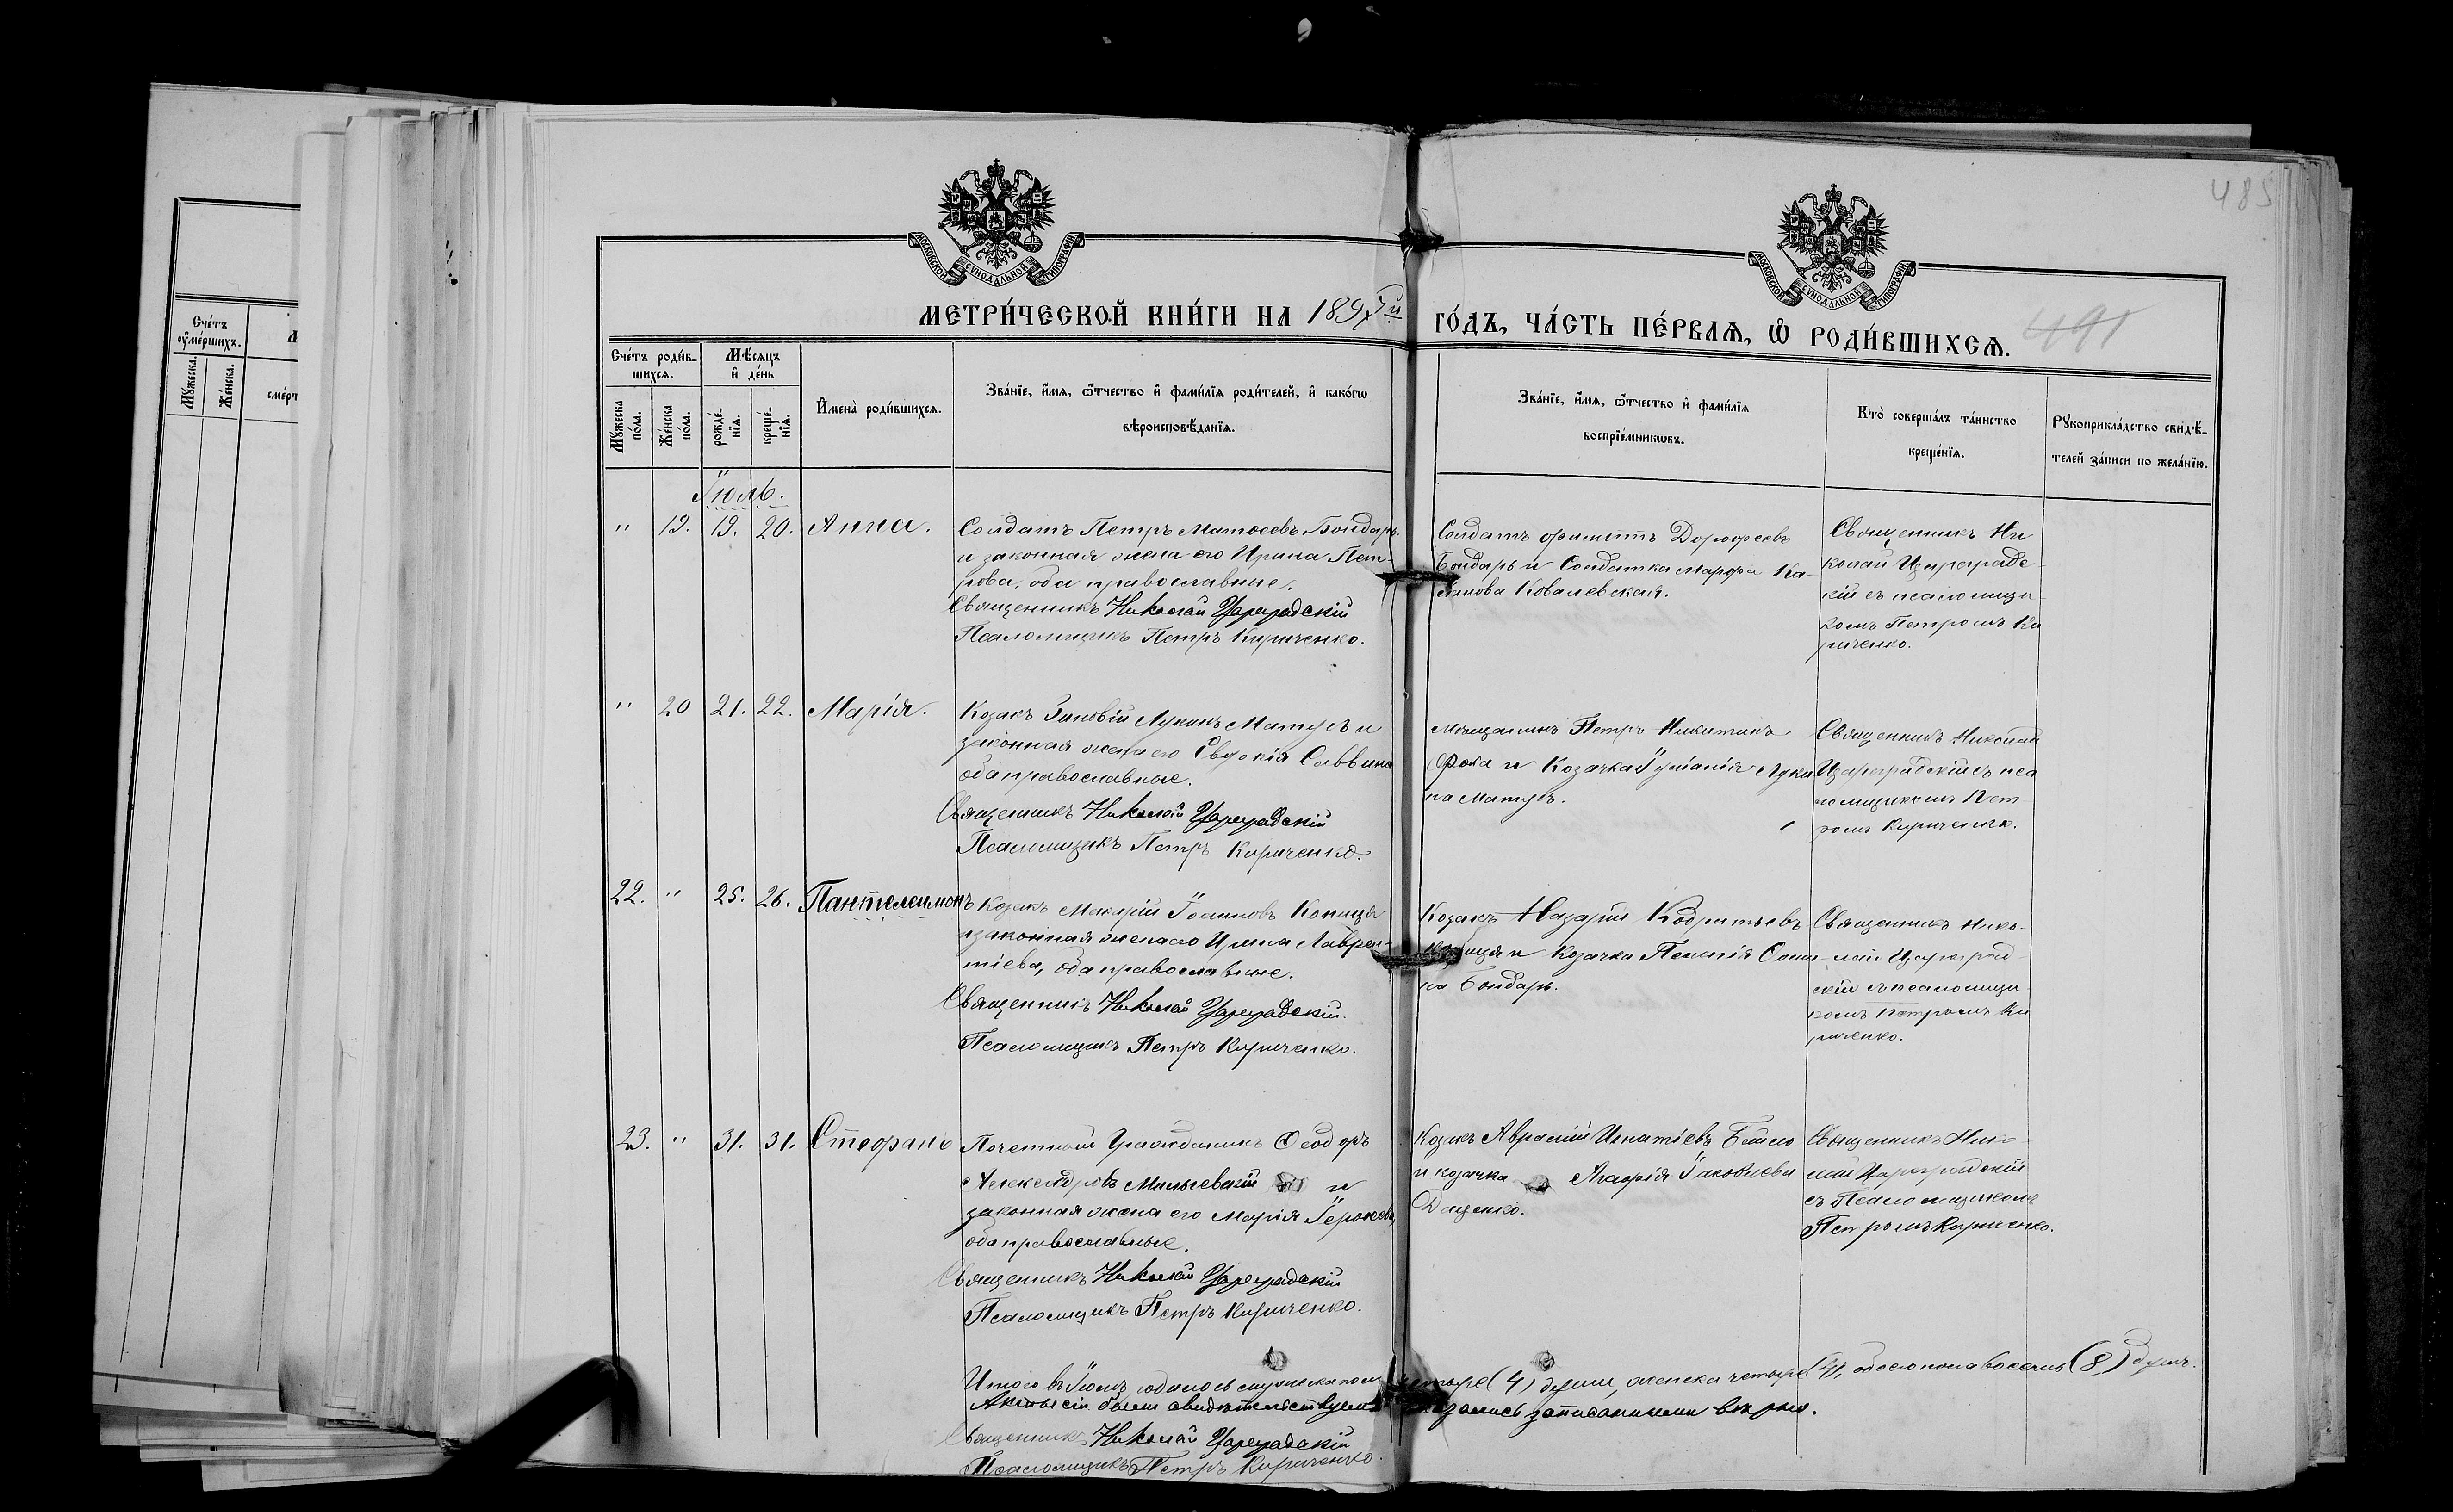 485
МОСКОВСКОЙ СѴНОДАЛЬНОЙ ТИПОГРАФІИ
МОСКОВСКОЙ СѴНОДАЛЬНОЙ ТИПОГРАФІИ
МЕТРИ́ЧЕСКОЙ КНИ́ГИ НА 189 й ГО́ДЪ, ЧА́СТЬ ПЕ́РВАѦ, Ѡ҆ РОДИ́ВШИХСѦ.
491
Счётъ ᲂу҆ме́ршихъ.
Мꙋ́жеска.
Же́нска.
Счётъ роди́вшихсѧ.
Мꙋ́жеска по́ла.
Же́нска по́ла.
Мѣ́сѧцъ и҆ де́нь
рожде́нїѧ.
креще́нїѧ.
И҆мена̀ роди́вшихсѧ.
Зва́нїе, и҆́мѧ, ѻ҆́тчество и҆ фами́лїѧ роди́телей, и҆ како́гѡ
вѣроисповѣ́данїѧ.
Зва́нїе, и҆́мѧ, ѻ҆́тчество и҆ фами́лїѧ
воспрїе́мникѡвъ.
Кто̀ соверша́лъ та́инство
креще́нїѧ.
Рꙋкоприкла́дство свидѣ́-
телей за́писи по жела́нїю.
Іюль.
" 19. 19. 20. Анна.
Солдатъ Петръ Матѳеевъ Бондарь
и законная жена его Ирина Пет-
рова, оба православные.
Священникъ Николай Цареградскій
Псаломщикъ Петръ Кириченко.
Солдатъ Дорофеевъ
Бондарь и Солдатка Марфа
Ковалевская.
Священникъ Ни
колай Цареградс-
кій съ псаломщи-
комъ Петромъ Ки
риченко.
" 20 21. 22. Марія.
Козакъ Зиновій Лукинъ Матусь и
законная жена его Евдокія Саввина
оба православные.
Священникъ Николай Цареградскій
Псаломщикъ Петръ Кириченко.
Мѣщанинъ Петръ Никитинъ
Фока и Козачка Іуліанія Луки
на Матусь.
Священникъ Николай
Цареградскій съ пса
ломщикомъ Пет
ромъ Кириченко.
22. " 25. 26. Пантелеимонъ
Козакъ Макарій Іоанновъ Копица
и законная жена его Ирина Лаврен-
тіева, оба православные.
Священникъ Николай Цареградскій.
Псаломщикъ Петръ Кириченко.
Козакъ Назарій Кодратьевъ
Копица и Козачка Пелагія
на Бондарь.
Священникъ Нико-
лай Цареград-
скій съ псаломщи-
комъ Петромъ Ки
риченко.
23. " 31. 31. Стефанъ
Почетный Гражданинъ Ѳеодоръ
Александровъ и
законная жена его Марія
оба православные.
Священникъ Николай Цареградскій
Псаломщикъ Петръ Кириченко.
Козакъ Игнатіевъ
и козачка Агафія Іаковлева
Даценко.
Священникъ Нико
лай Цареградскій
съ Псаломщикомъ
Петромъ Кириченко.
Итого въ Іюлѣ родилось мужеска пола четыре (4) души, женска четыре (4), обоего пола восемь (8) душъ.
Акты сіи были свидѣтельствуемы записанными вѣрно.
Священникъ Николай Цареградскій
Псаломщикъ Петръ Кириченко.